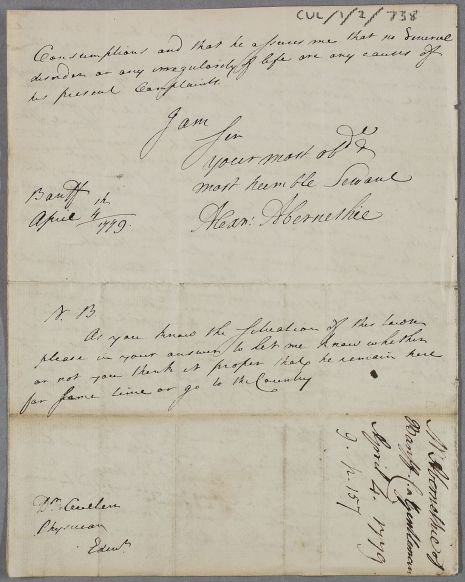 CUL/1/2/738
Consumptions and that he assures me that no Venereal
disorder or any irregularity of life are any causes of
his present Complaints.
I am
Sir
your most obd.t &
most humble Servant
Alexr: Abernethie
Banff
April 4th 1779.
N. B.
As you know the situation of this town
please in your answer to let me know whether
or not you think it proper that he remain here
for some time or go to the Country
Dr. Cullen
Physician
Edinr.
Mr Abernethie of
Banff C. a Gentleman
April 4. 1779
9. p. 157